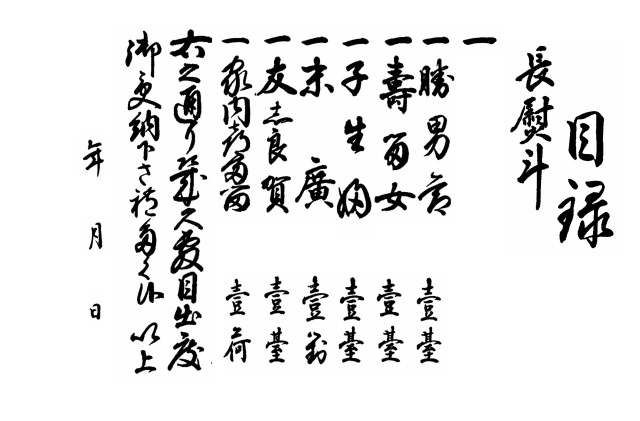 目録
長熨斗
一
一 勝男節 壹臺
一 壽留女 壹臺
一 子生婦 壹臺
一 末廣 壹對
一 友志良賀 壹臺
一 家内喜多留 壹荷
右之通り幾久敷目出度
御受納下さ禮度く候 以上
年 月 日